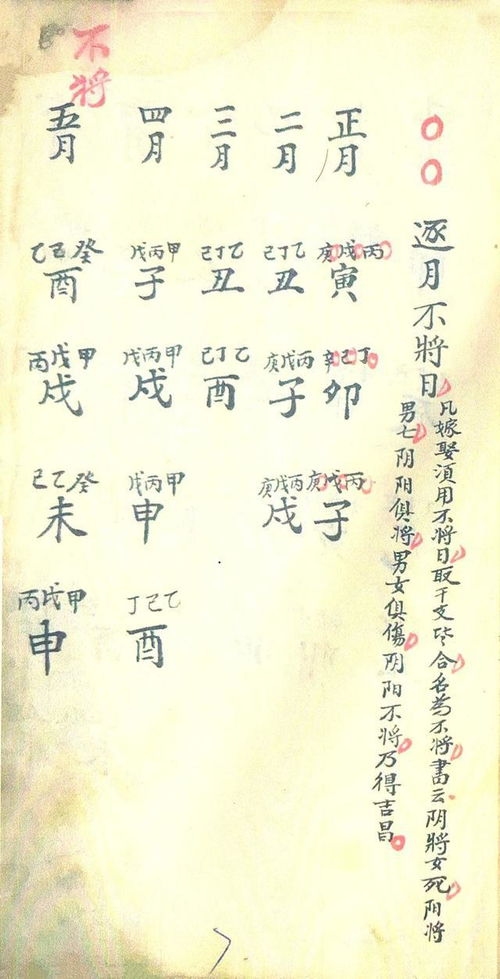 逐月不将日
凡嫁娶須用不将日取干支合名為不将書云阴將女死阳将
男七阴阳俱將男女俱傷阴阳不将乃得吉昌
正月 丙戊庚寅 丁己辛卯 丙戊庚子
二月 乙丁己丑 丙戊庚子 丙戊庚戌
三月 乙丁己丑 乙丁己酉
四月 甲丙戊子 甲丙戊戌 甲丙戊申 乙己丁酉
不将
五月 癸五乙酉 甲戊丙戌 癸乙己未 甲戊丙申